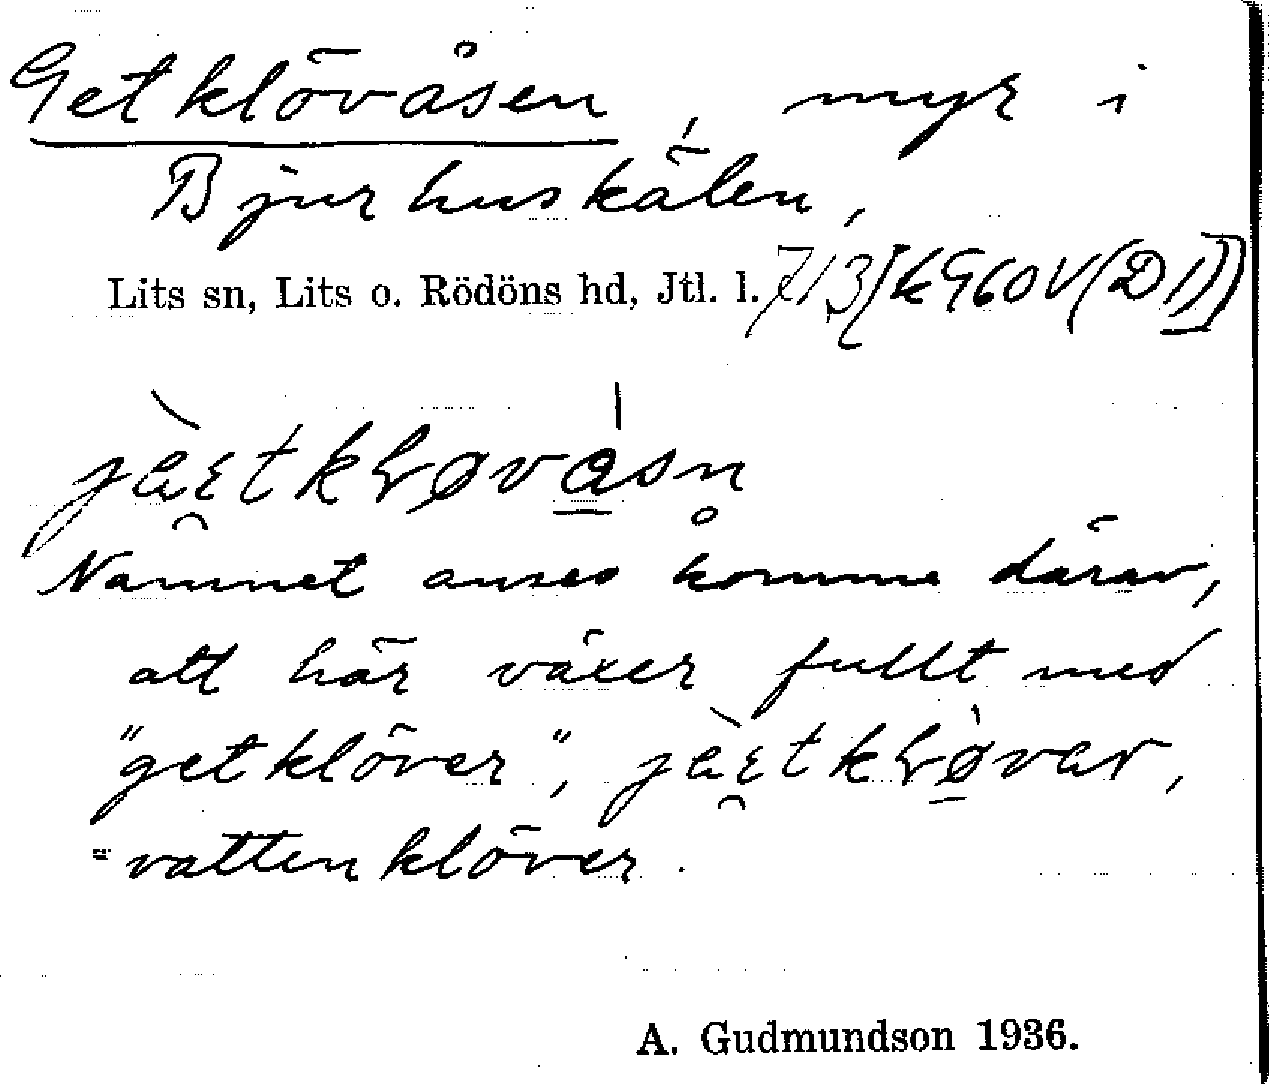 Getklövåsen, myr i
Bjurhuskälen,
Lits sn, Lits o. Rödöns hd, Jtl. l.
Namnet anses komma därav,
att här växer fullt med
"getklöver",
= vattenklöver.
A. Gudmundson 1936.